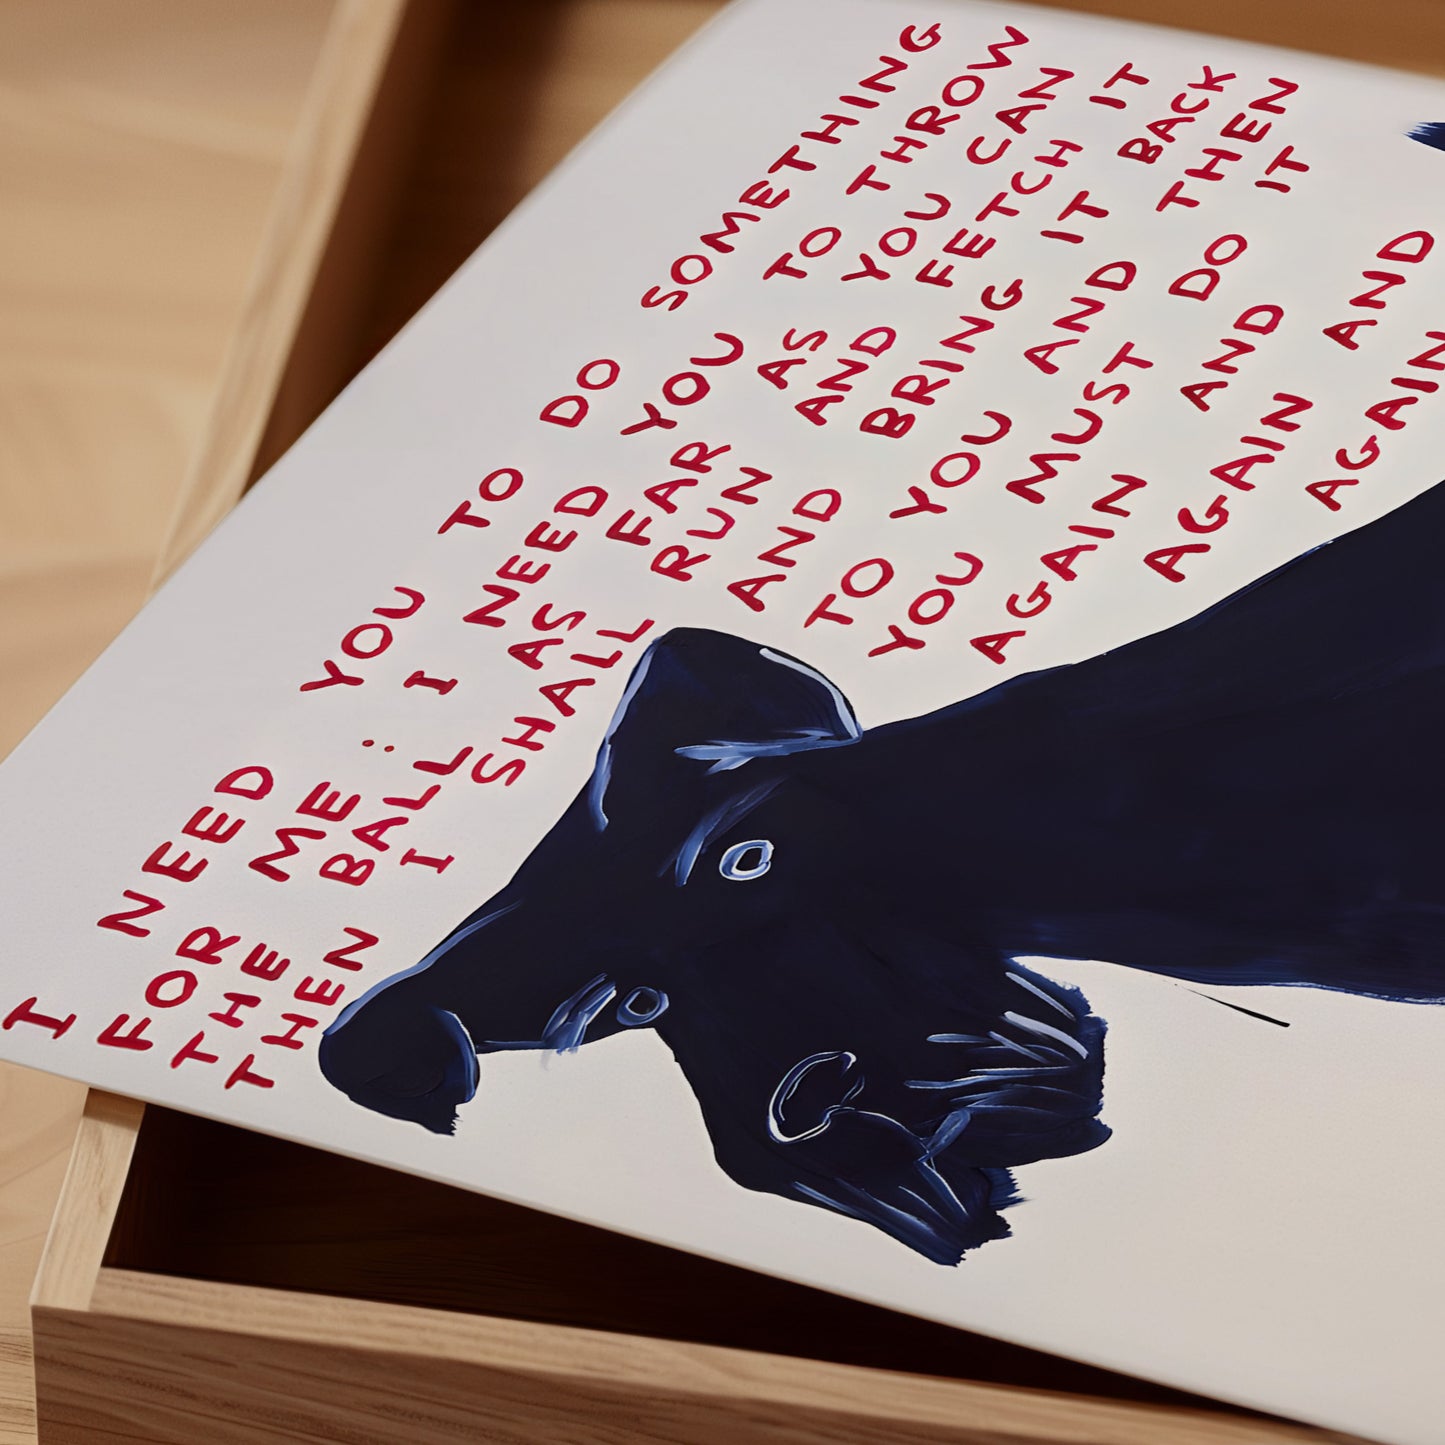 I NEED YOU TO DO SOMETHING
FOR ME : I NEED YOU TO THROW
THE BALL AS FAR AS YOU CAN
THEN I SHALL RUN AND FETCH IT
AND BRING IT BACK
TO YOU AND THEN
YOU MUST DO IT
AGAIN AND
AGAIN AND
AGAIN